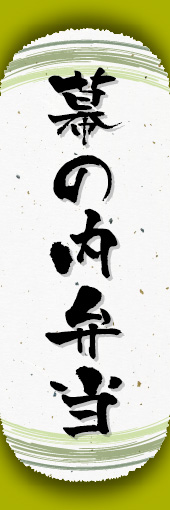 幕の内弁当